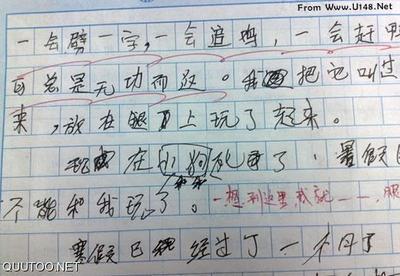 From Www.U148.Net
一会劈一字,一会追鸡,一会赶
可总是无功而返。我把它叫过
来,放在腿上玩了起来。
现在小狗了,暑假
不能和我玩了。一想到这里,我就——,眼
暑假已经经过了一个月了
QUUTOO.NET